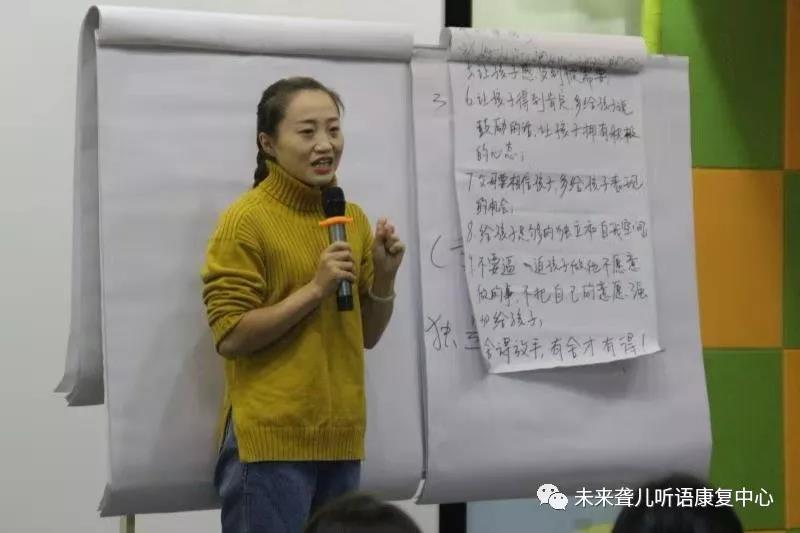 5.让孩子感受到被需要;
3
6.让孩子得到肯定,多给孩子说
鼓励的话,让孩子拥有积极
的心态;
7.父母要相信孩子,多给孩子表现
的机会;
8.给孩子足够的独立和自我空间
9.不要逼迫孩子做他不愿意
做的事,不把自己的意愿强
加给孩子;
舍得放手,有舍才有得!
独立
未来聋儿听语康复中心